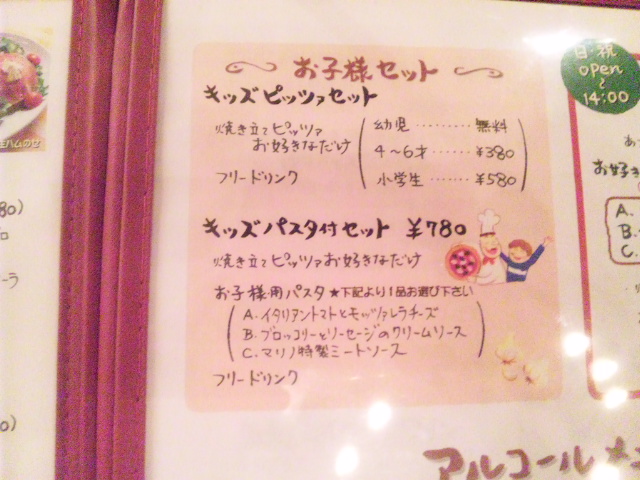 お子様セット
キッズピッツァセット
焼き立てピッツァ
お好きなだけ
幼児 ········ 無料
4〜6才 ······ ¥380
小学生 ······ ¥580
フリードリンク
キッズパスタ付セット ¥780
焼き立てピッツァお好きなだけ
お子様用パスタ ★下記より1品お選び下さい
A.イタリアントマトとモッツァレラチーズ
B.ブロッコリーとソーセージのクリームソース
C.マリノ特製ミートソース
フリードリンク
日·祝
open
〜
14:00
お好き
A.
B.
C.
アルコールメ
生ハムのせ
80)
ーラ
0)